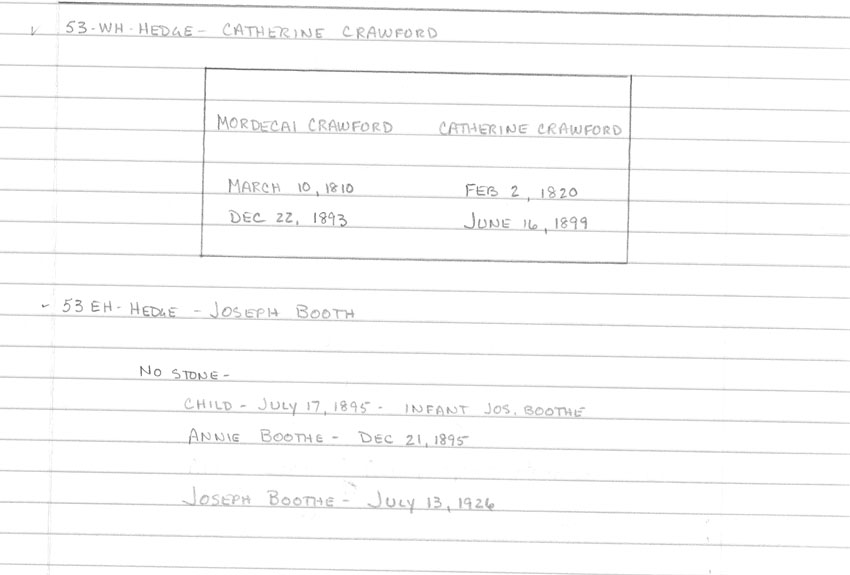 ✓ 53-WH-HEDGE- CATHERINE CRAWFORD
MORDECAI CRAWFORD CATHERINE CRAWFORD
MARCH 10, 1810 FEB 2, 1820
DEC 22, 1893 JUNE 16, 1899
✓ 53 EH-HEDGE - JOSEPH BOOTH
NO STONE-
CHILD - JULY 17, 1895 - INFANT JOS. BOOTHE
ANNIE BOOTHE - DEC 21, 1895
JOSEPH BOOTHE - JULY 13, 1926